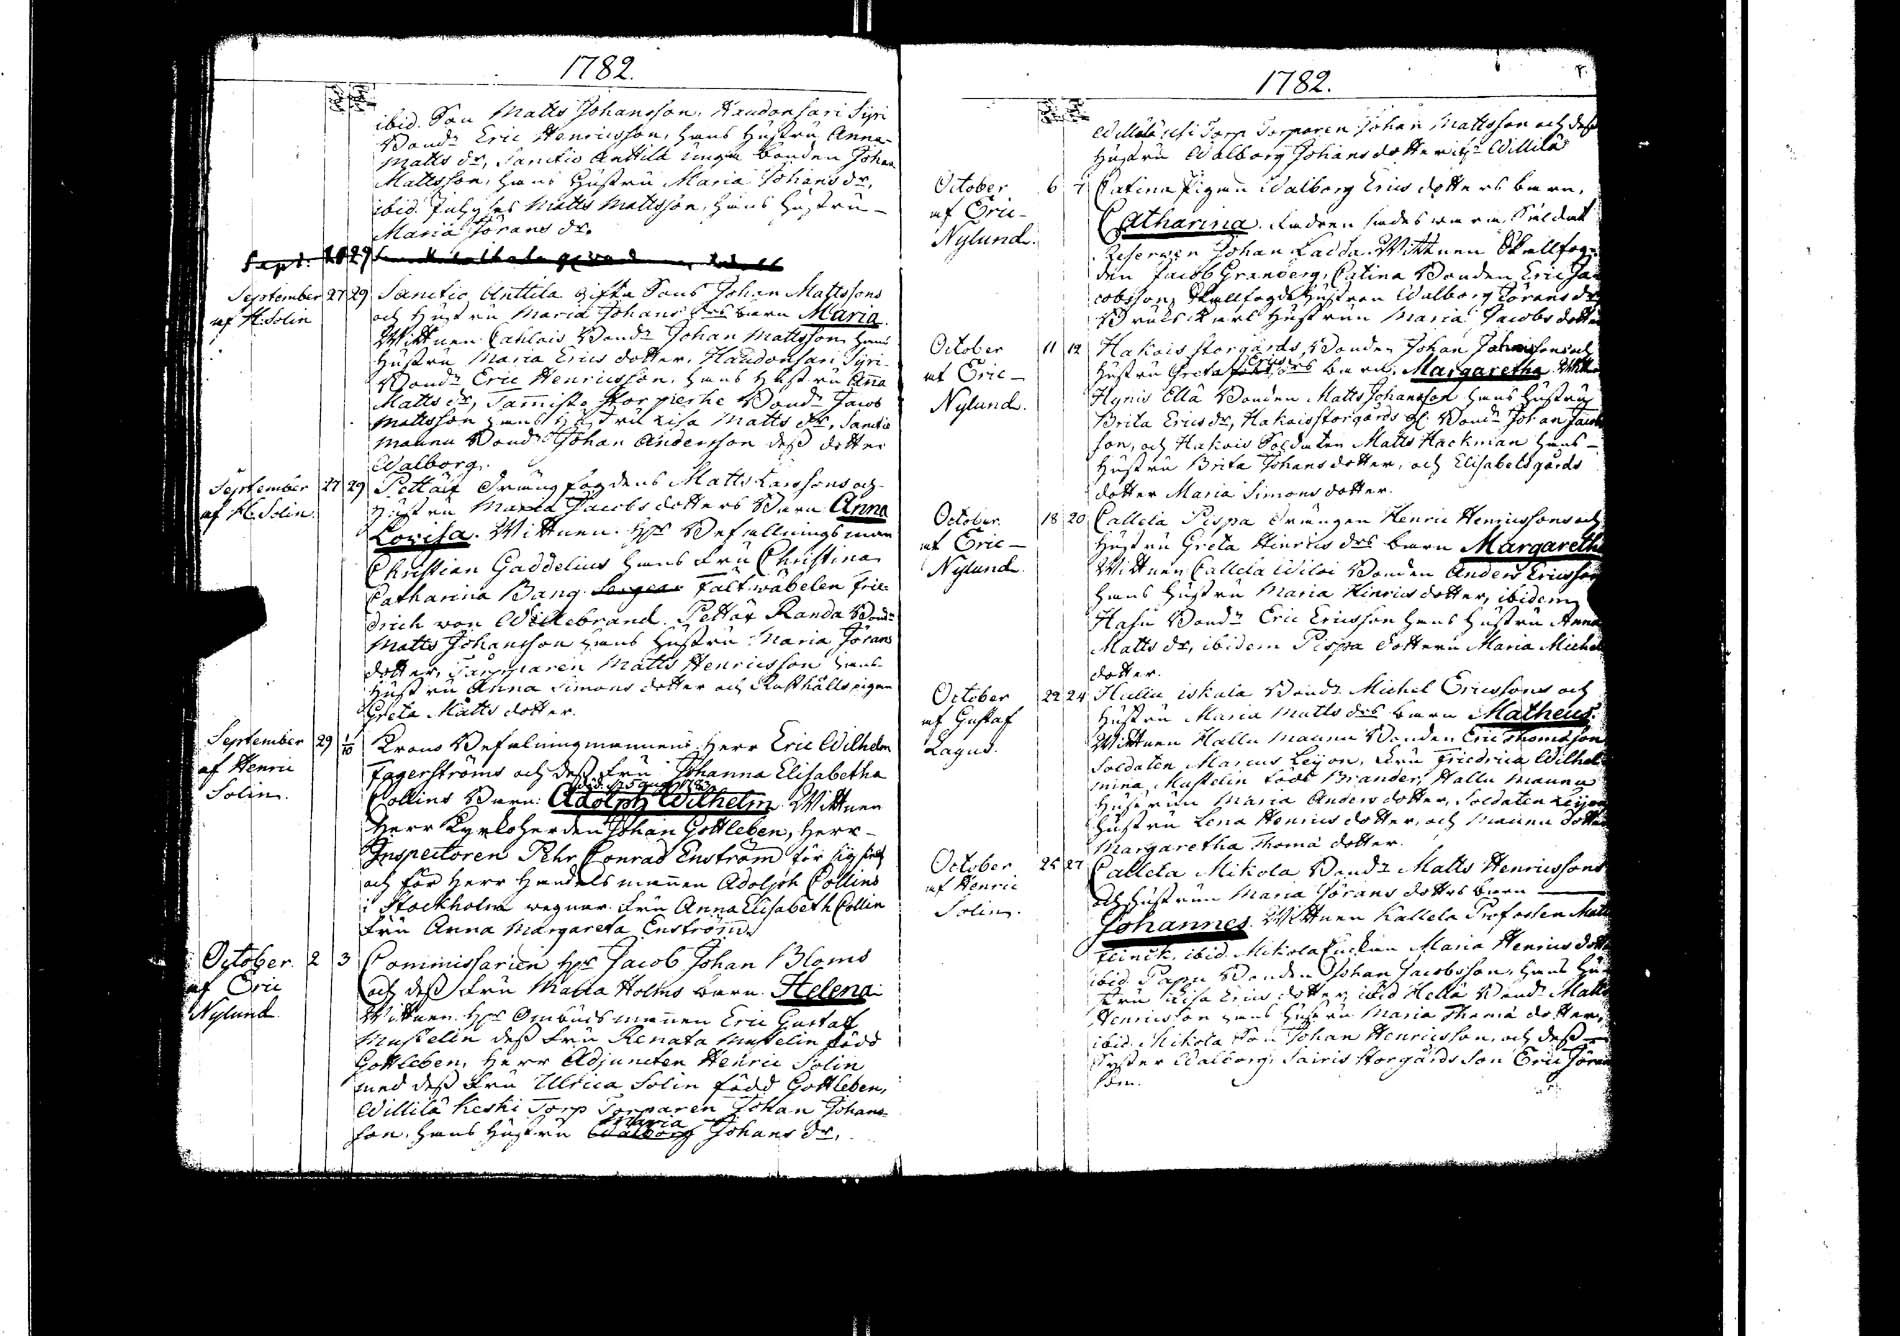 1782.
ibid. Son Matts Johansson, Haudonsari Syri
Bonds Eric Henricsson, hans hustru Anna
Matts dr, Sanctio Anttila unga bonden Johan
Mattsson, hans hustru Maria Johans dr,
ibid. Matts Mattsson, hans hustru
Maria Jörans dr.
Sept. 29
September 27 29 Sanctio Anttila gifta Sons Johan Mattssons
af H. Solin och hustru Maria Johans drs barn Maria.
Wittnen Cahlois Bond Johan Mattsson hans
hustru Maria Erics dotter, Haudonsari Syri
Bond Eric Henricsson, hans hustru Anna
Matts dr, Tammisto Storpierhe Bond Jacob
Mattsson hans hustru Lisa Matts dr, Sanctio
Maunu Bond Johan Andersson dess dotter
Walborg.
September 27 29 Pettäix Drängfogdens Matts Larssons och
af H. Solin. hustru Maria Jacobs dotters Barn Anna
Lovisa. Wittnen. Hr Befallningsman
Christian Gaddelius hans Fru Christina
Catharina Bang. fältwäbelen Frie-
drich von Willebrand. Pettäx Randa Bond
Matts Johansson hans hustru Maria Jörans
dotter, Torpparen Matts Henricsson hans
hustru Anna Simons dotter och Rusthållspigan
Greta Matts dotter.
September 29 1/10 Krono Befalningsmannens Herr Eric Wilhelm
af Henric Fagerströms och dess Fru Johanna Elisabetha
Solin. Collins Barn: Adolph Wilhelm. Wittnen
Herr Kyrkoherden Johan Gottleben, Herr
Inspectoren Pehr Conrad Enström för sig sielf
och för Herr Handelsmannen Adolph Collins
i Stockholm wegnar. Fru Anna Elisabeth Collin
Fru Anna Margareta Enström.
October. 2 3 Commissarien Hr Jacob Johan Bloms
af Eric och dess Fru Maria Holms barn. Helena
Nylund. Wittnen. Hr Ombudsmannen Eric Gustaf
Mustelin dess Fru Renata Mustelin född
Gottleben, Herr Adjuncten Henric Solin
med dess Fru Ulrica Solin född Gottleben,
Willilä Keski Torp Torparen Johan Johans-
son, hans hustru Maria Johans dr,
1782.
Willilä Torp Torparen Johan Mattsson och dess
hustru Walborg Johans dotter Willilä
October 6 7 Catina Pigan Walborg Erics dotters barn,
af Eric Catharina. Fadren Soldat
Nylund. Reserven Johan Laeda. Wittnen Stallfog-
den Jacob Granberg, Catina Bonden Eric Ja-
cobsson, Stallfogde hustrun Walborg Jörans dr
hustrun Maria Jacobs dotter
October 11 12 Hakois storgårds Bonden Johan Johanssons och
af Eric hustru Greta Erics drs barn. Margaretha. Wittn
Nylund. Hynis Ellä Bonden Matts Johansson hans hustru
Brita Erics dr, Hakois storgårds Bond Johan Jacobs
son, och Hakois Soldaten Matts Hackman hans
hustru Brita Johans dotter, och Elisabetsgårds
dotter Maria Simons dotter.
October. 18 20 Callela Pispa Drängen Henric Henricssons och
af Eric hustru Greta Hinrics drs barn Margareth
Nylund. Wittnen Callela Wiloi Bonden Anders Ericsson
hans hustru Maria Hinrics dotter, ibidem
Hasu Bond Eric Ericsson hans hustru Anna
Matts dr, ibidem Pispa dottern Maria Michels
dotter.
October 22 24 Hallu iskala Bond Michel Ericssons och
af Gustaf hustru Maria Matts drs barn Matheus.
Lagus. Wittnen Hallu Maunu Bonden Eric Thomasson
Soldaten Marcus Leijon, Fru Friedrica Wilhel-
mina Mustelin född Brander, Hallu Maunu
hustrun Maria Anders dotter, Soldaten Leijon
hustru Lena Henrics dotter, och Maunu dotter
Margaretha Thoma dotter.
October. 25 27 Callela Mikola Bond Matts Henricssons
af Henric och hustrun Maria Jörans dotters barn
Solin. Johannes. Wittnen Kallela Profossen Matts
Flinck, ibid. Mikola Maria Henrics dotter
ibid Papu Bonden Johan Jacobsson, hans hu-
stru Lisa Erics dotter, ibid Hellä Bond Matts
Henricsson hans hustru Maria Thoma dotter,
ibid. Mikola Son Johan Henricsson, och dess
Syster Walborg, Sairis storgårds Son Eric Jörans
son.